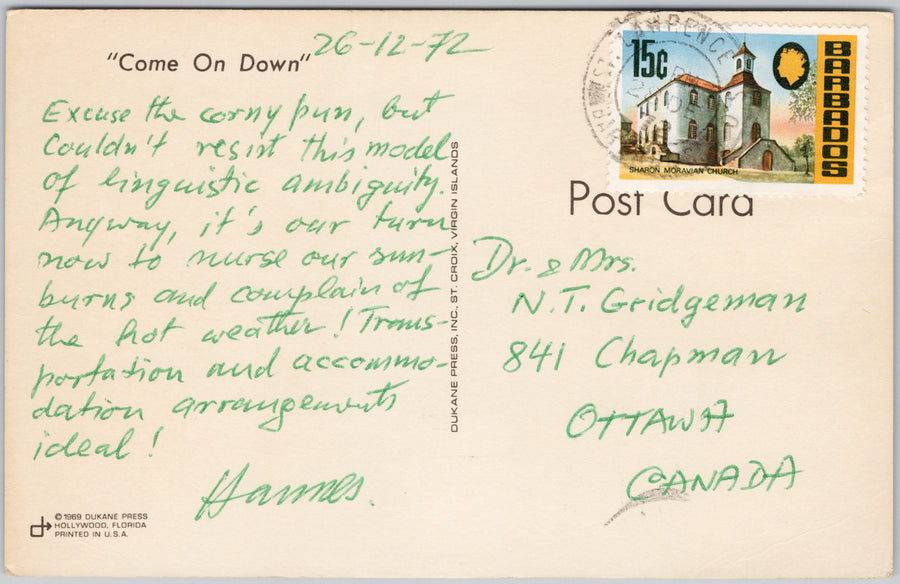 "Come On Down"
26-12-72
Excuse the corny pun, but
Couldn't resist this model
of linguistic ambiguity.
Anyway, it's our turn
now to nurse our sun-
burns and complain of
the hot weather! Trans-
portation and accommo-
dation arrangements
ideal!
Hannes.
© 1969 DUKANE PRESS
HOLLYWOOD, FLORIDA
PRINTED IN U.S.A.
DUKANE PRESS, INC., ST. CROIX, VIRGIN ISLANDS
ST. LAWRENCE
15¢
BARBADOS
SHARON MORAVIAN CHURCH
Post Card
Dr. & Mrs.
N.T. Gridgeman
841 Chapman
OTTAWA
CANADA